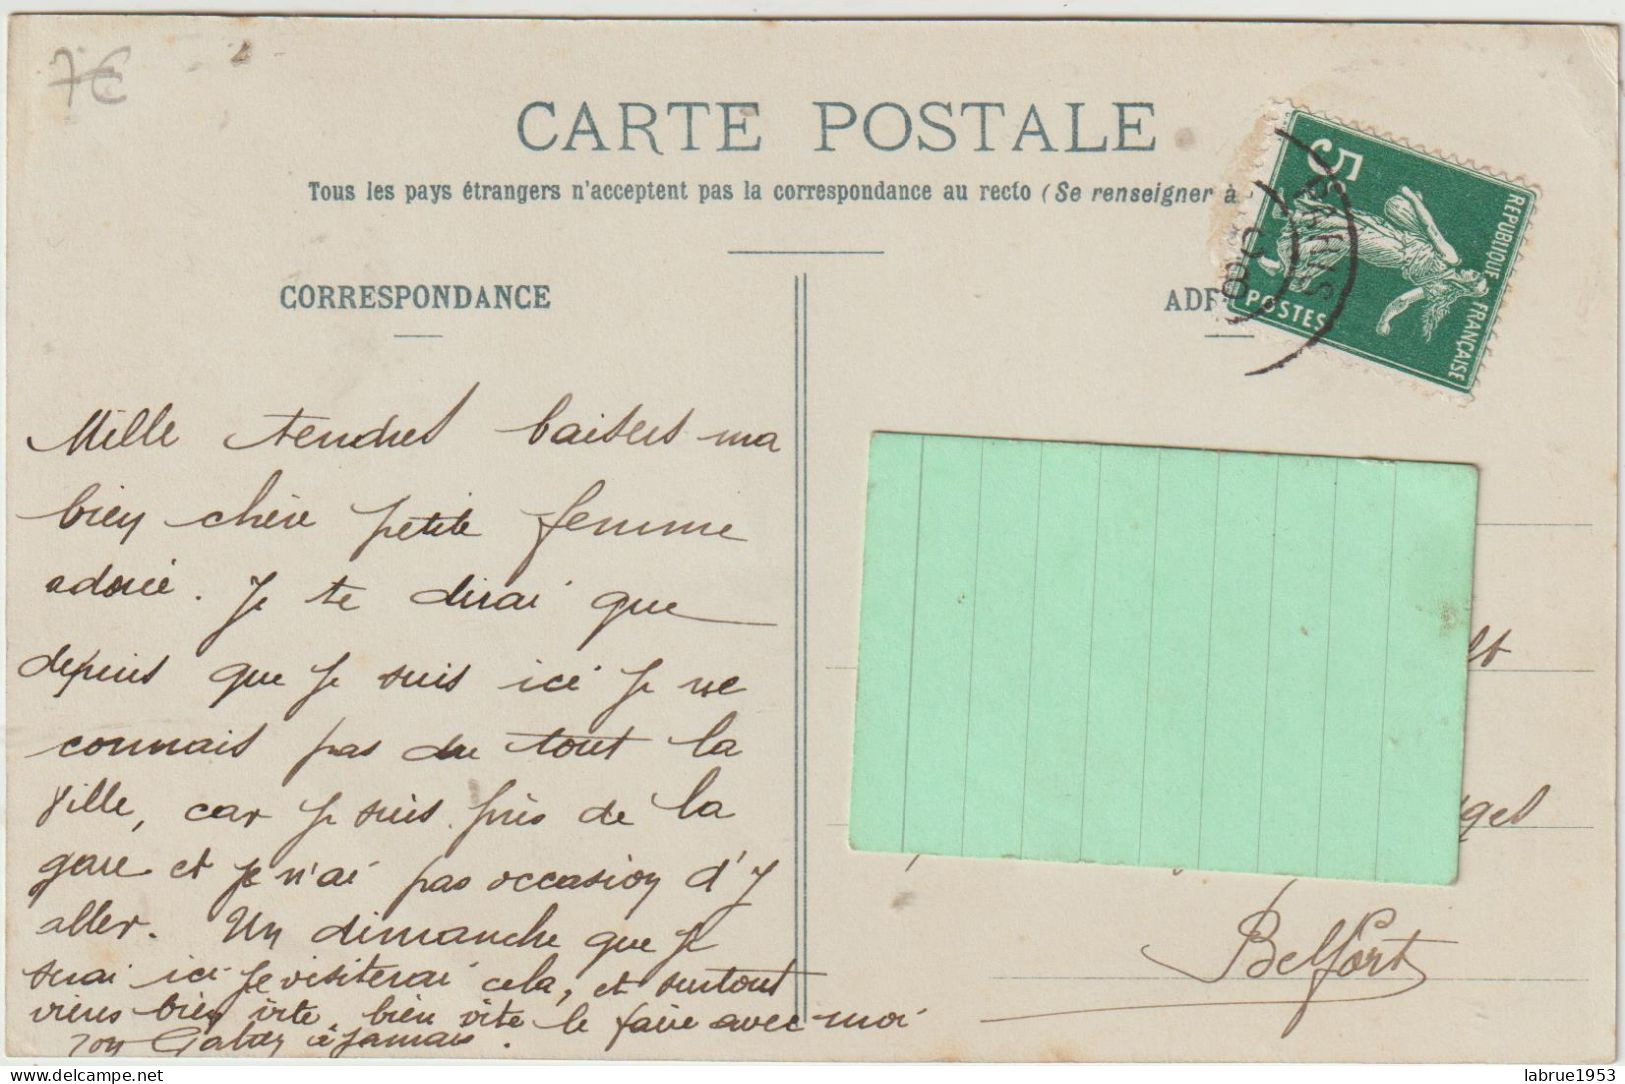 7€
CARTE POSTALE
Tous les pays étrangers n'acceptent pas la correspondance au recto (Se renseigner à
CORRESPONDANCE
ADR
5
REPUBLIQUE FRANÇAISE
POSTES
08
Mille tendres baisers ma
bien chère petite femme
adorée. Je te dirai que
depuis que je suis ici je ne
connais pas du tout la
ville, car je suis près de la
gare et je n'ai pas occasion d'y
aller. Un dimanche que je
serai ici je visiterai cela, et surtout
viens bien vite, bien vite le faire avec moi
ton Gaby à jamais.
lt
ges
Belfort
www.delcampe.net
labrue1953